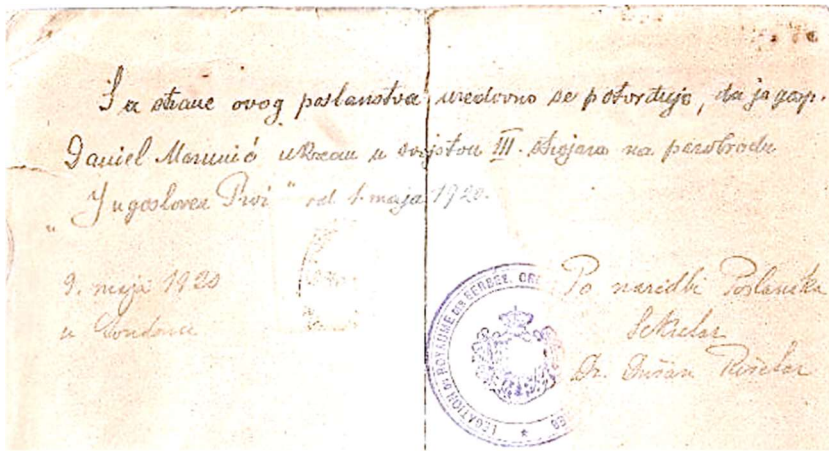 Sa strane ovog poslanstva uredovno se potvrdjuje, da je gosp.
Daniel Marunić ukrcan u svojstvu III. strojara na parobrodu
"Jugosloven Prvi" od 1. maja 1920.
9. maja 1920
u Londonu
Po naredbi Poslanika
Sekretar
Dr. Dušan
LEGATION DU ROYAUME DES SERBES, CRO